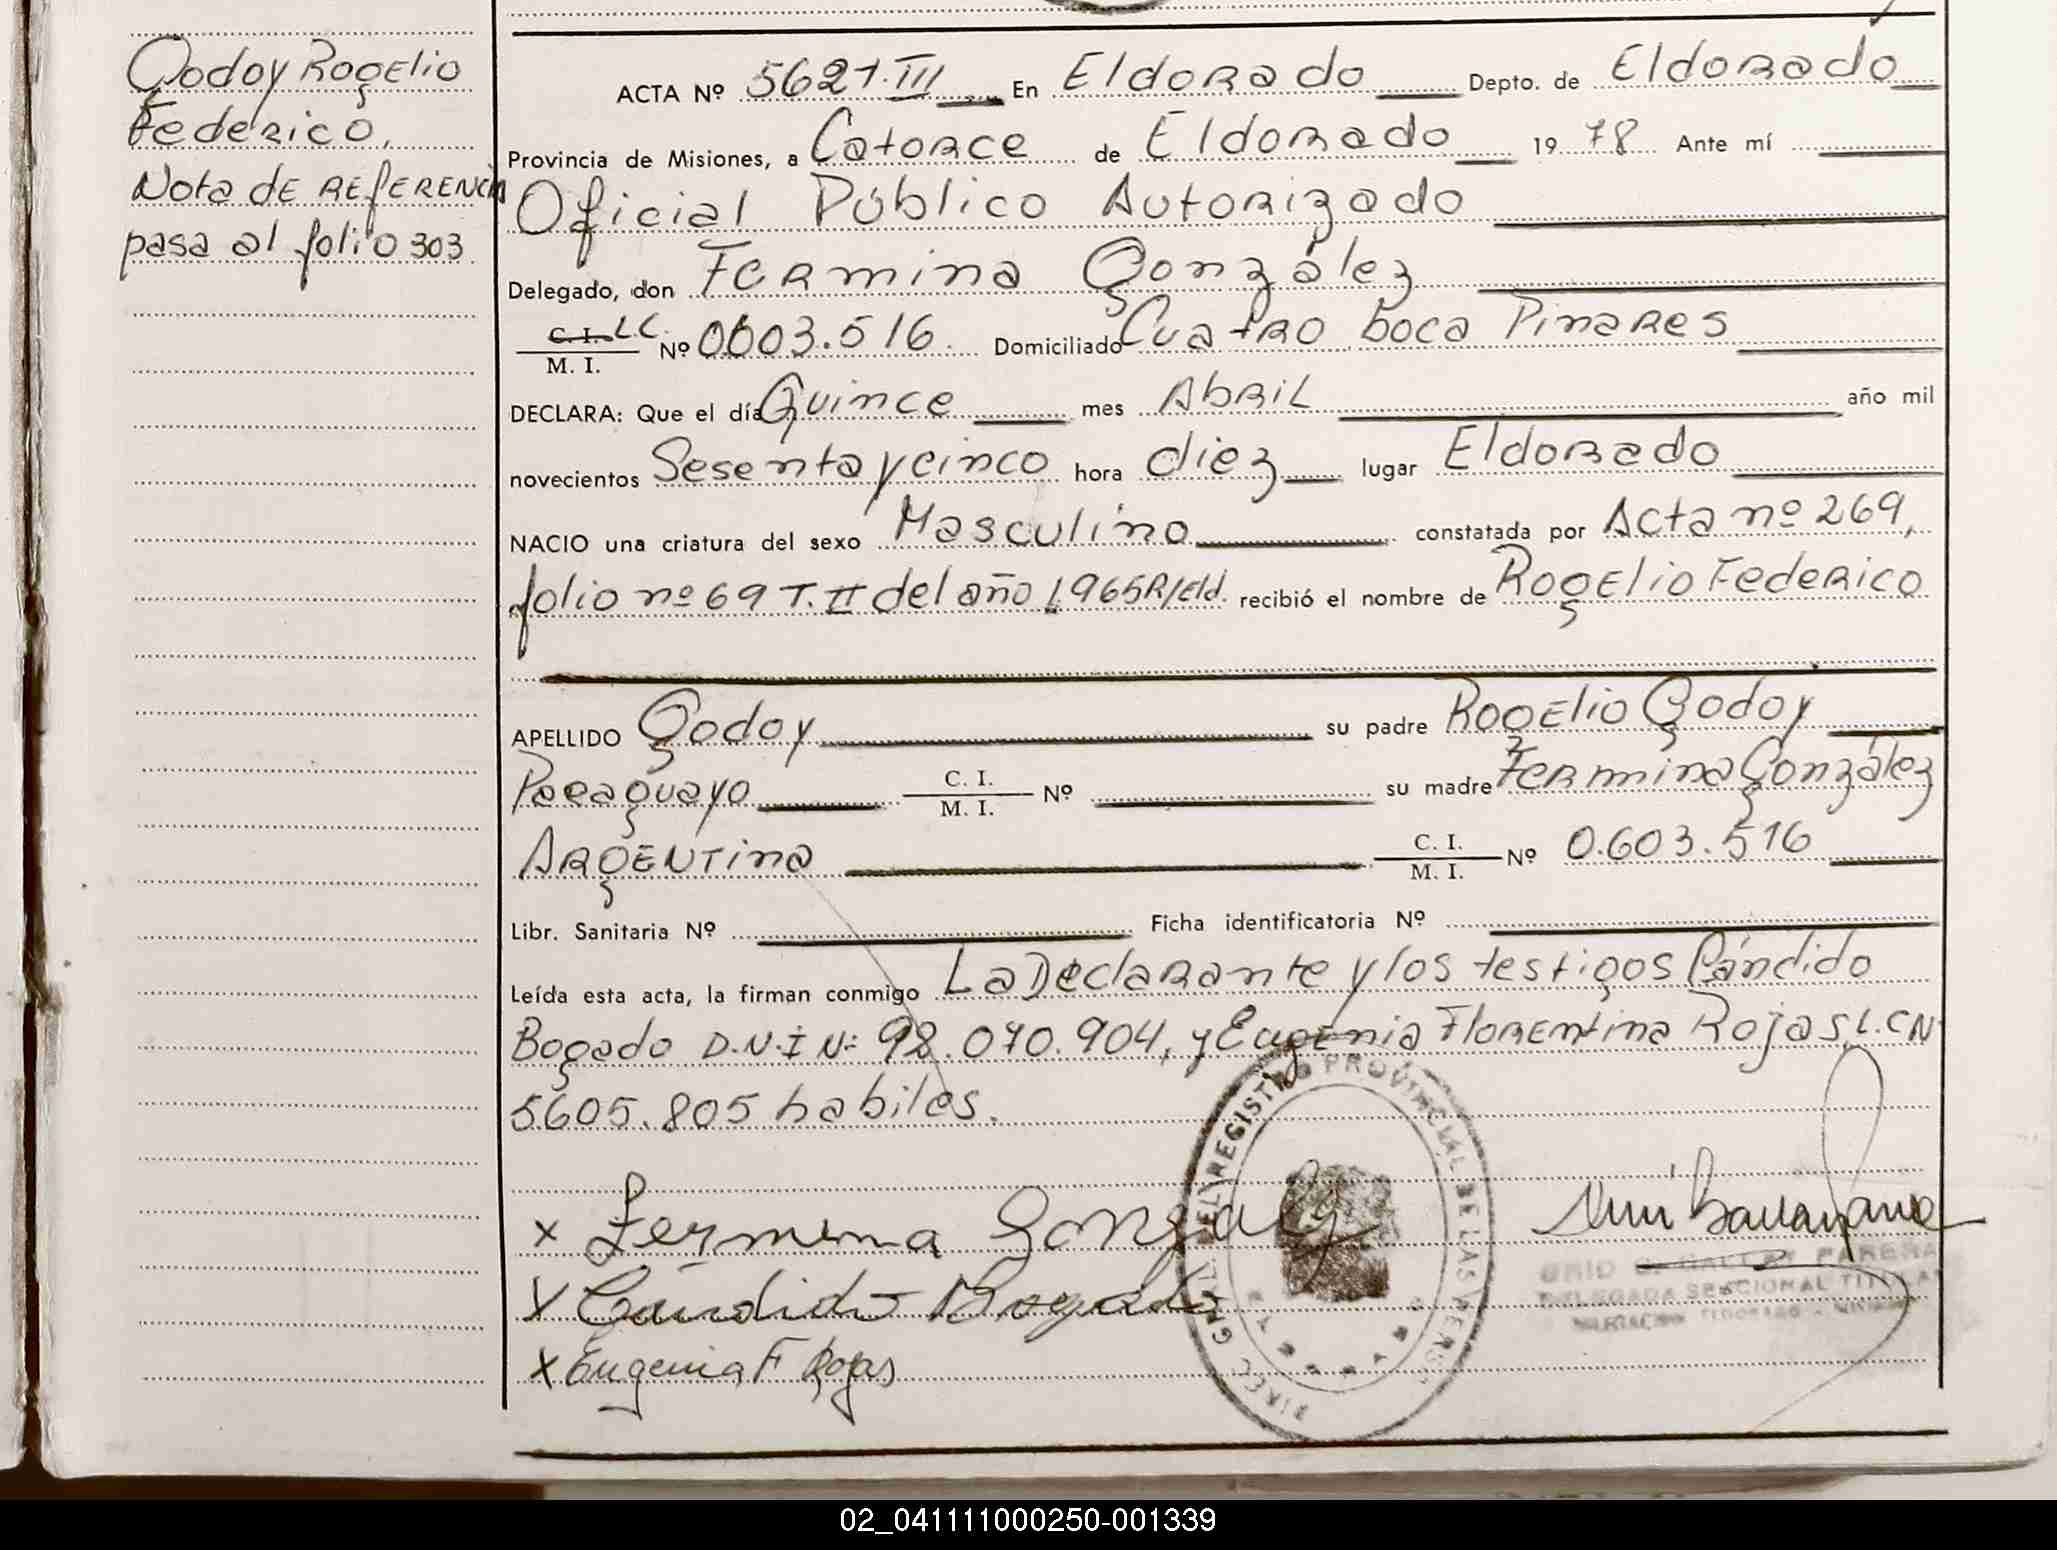 Godoy Rogelio
Federico.
Nota de Referencia
pasa al folio 303
ACTA Nº 5621.T.III En Eldorado Depto. de Eldorado
Provincia de Misiones, a Catorce de Eldorado 1978 Ante mí
Oficial Público Autorizado
Delegado, don Fermina González
C. I. LC.
M. I. Nº 0603.516. Domiciliado Cuatro boca Pinares
DECLARA: Que el día Quince mes Abril año mil
novecientos Sesenta y cinco hora diez lugar Eldorado
NACIO una criatura del sexo Masculino constatada por Acta nº 269,
folio nº 69 T. II del año 1965 R/Eld. recibió el nombre de Rogelio Federico
APELLIDO Godoy su padre Rogelio Godoy
Paraguayo C. I. M. I. Nº su madre Fermina González
Argentina C. I. M. I. Nº 0.603.516
Libr. Sanitaria Nº Ficha identificatoria Nº
Leída esta acta, la firman conmigo La Declarante y los testigos Cándido
Bogado D.N.I Nº: 92.070.904, y Eugenia Florentina Rojas L.C N
5605.805 habiles.
x Fermina Gonzalez
x Cándido Bogado
x Eugenia F Rojas
DIREC. GRAL. DEL REGISTRO PROVINCIAL DE LAS PERS.
DELEGADA SECCIONAL TITULAR
02_041111000250-001339